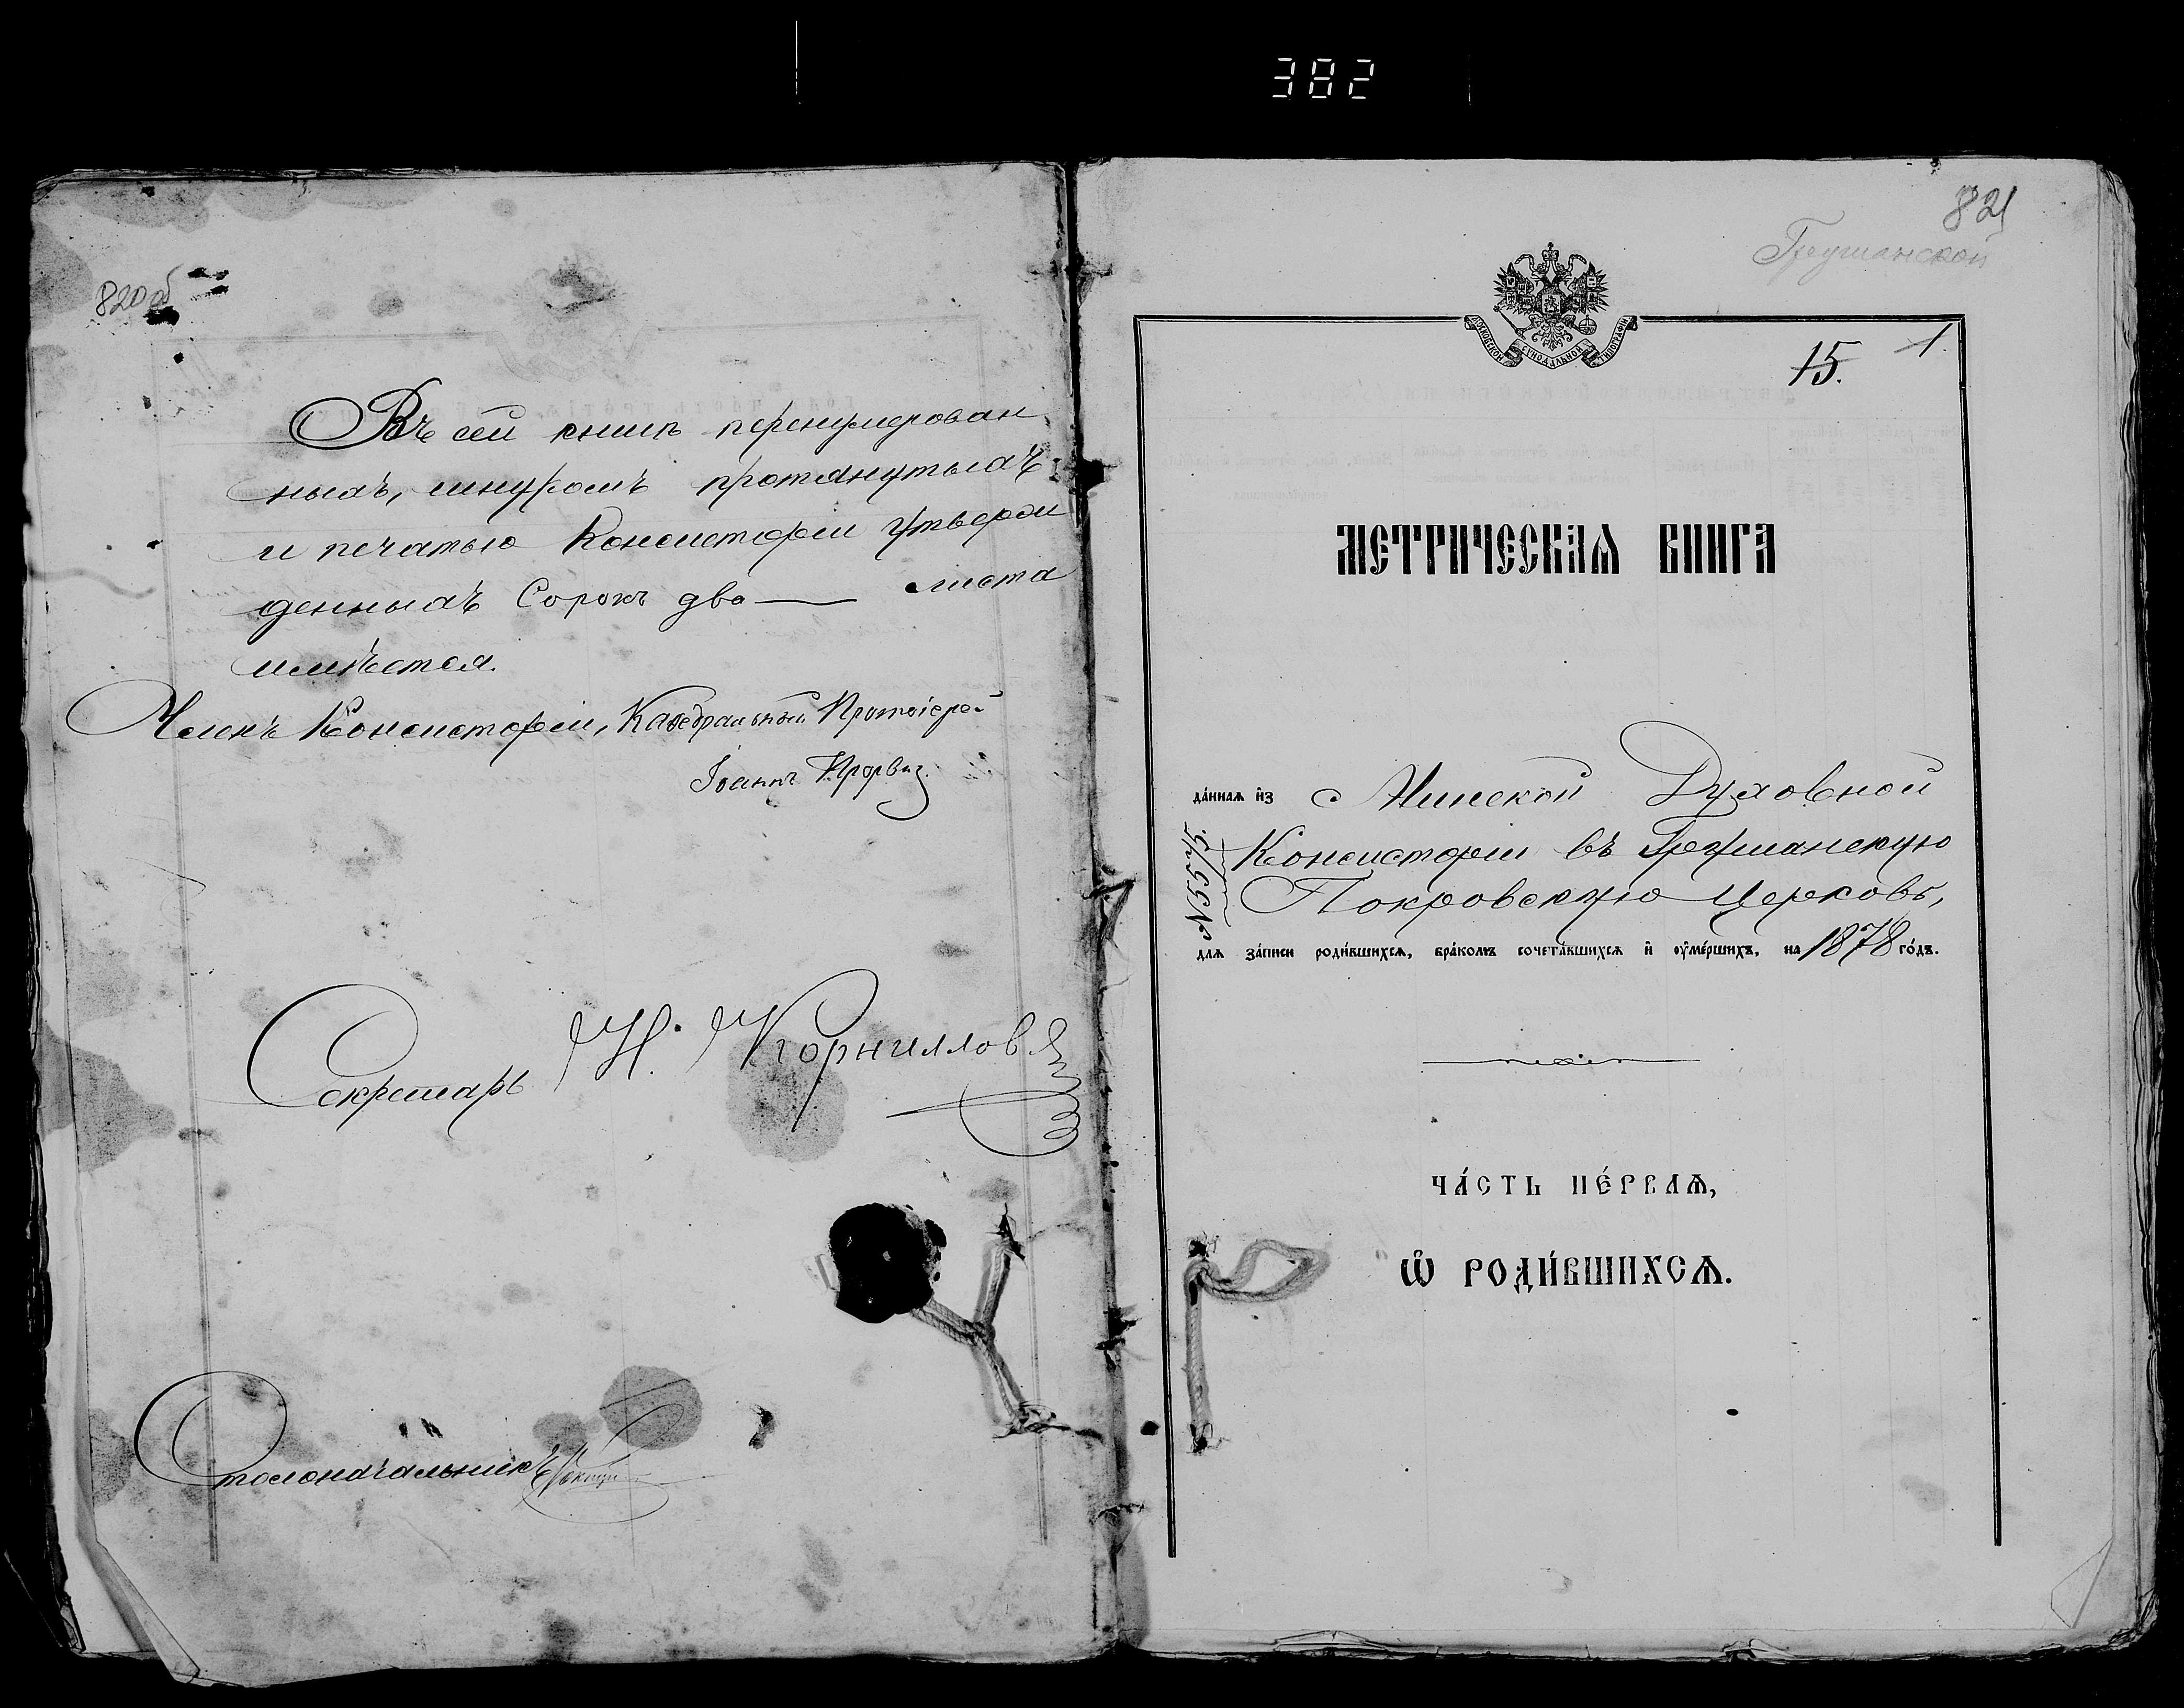 382
820об
Въ сей книгѣ перенумерован
ныхъ, шнуромъ протянутыхъ
и печатью Консисторіи утверж
денныхъ Сорокъ два — листа
имѣется.
Членъ Консисторіи, Каѳедральный Протоіерей
Іоаннъ
Секретарь Н. Корниловъ
Столоначальникъ
821
Грушанской
МОСКОВСКОЙ СѴНОДАЛЬНОЙ ТИПОГРАФІИ
15. 1.
МЕТРИЧЕСКАѦ КНИГА
да́ннаѧ и҆з Минской Духовной
Консисторіи въ Грушанскую
Покровскую Церковь,
№ 5575
длѧ за́писи роди́вшихсѧ, бра́комъ сочета́вшихсѧ и҆ ᲂу҆ме́ршихъ, на 1878 го́дъ.
ЧА́СТЬ ПЕ́РВАѦ,
Ѡ҆ РОДИ́ВШИХСѦ.